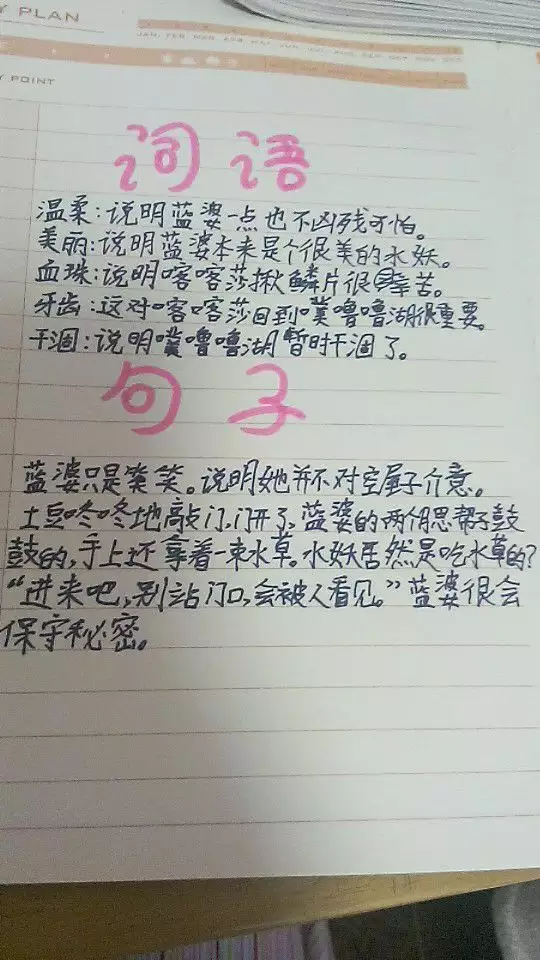 Y PLAN
JAN. FEB. MAR. APR. MAY. JUN. JUL. AUG. SEP. OCT. NOV. DEC.
Y POINT
词语
温柔:说明蓝婆一点也不凶残可怕。
美丽:说明蓝婆本来是个很美的水妖。
血珠:说明喀喀莎揪鳞片很辛苦。
牙齿:这对喀喀莎回到噗噜噜湖很重要。
干涸:说明噗噜噜湖暂时干涸了。
句子
蓝婆只是笑笑。说明她并不对空屋子介意。
土豆咚咚地敲门,门开了,蓝婆的两个腮帮子鼓
鼓的,手上还拿着一束水草。水妖居然是吃水草的?
“进来吧,别站门口,会被人看见。”蓝婆很会
保守秘密。